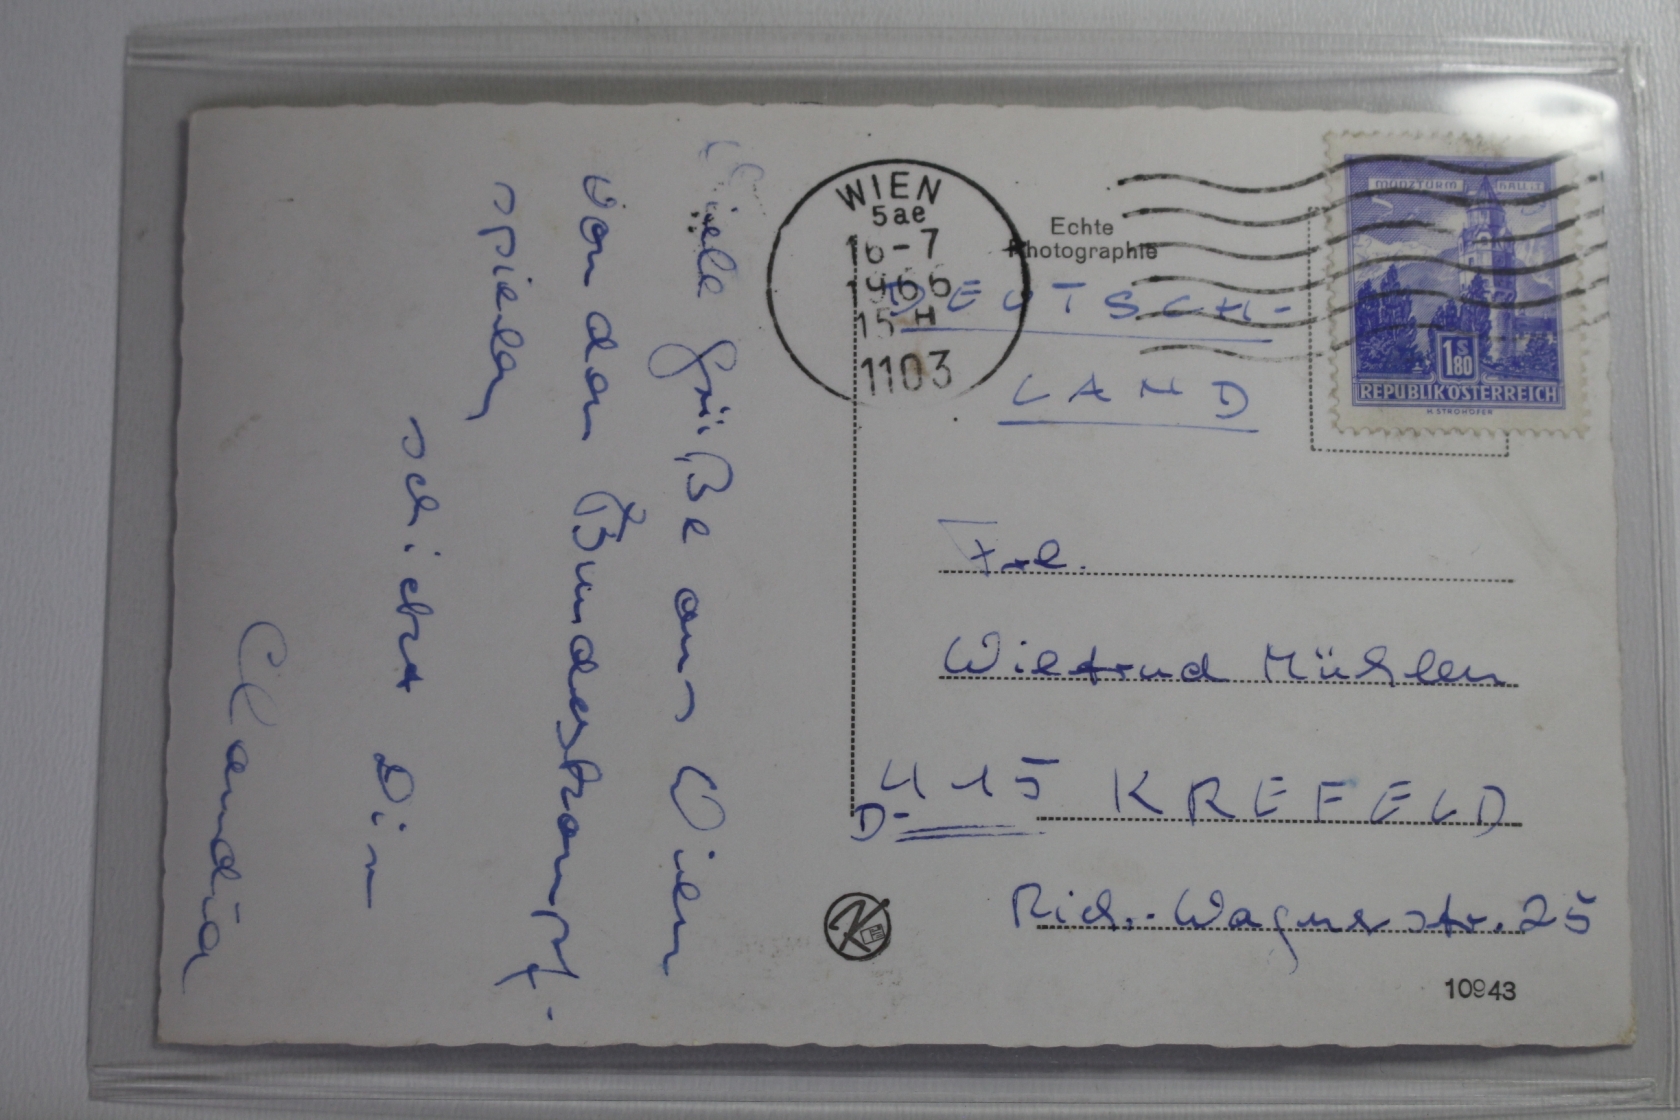 Viele Grüße aus Wien
von den Bundestrampf-
spielen
schickt Dir
Claudia
WIEN
5ae
16-7
1966
15H
1103
Echte
Photographie
MÜNZTURM HALL i.T.
1S80
REPUBLIK ÖSTERREICH
H. STROHOFER
DEUTSCH-
LAND
Frl.
Wiltrud Mühlen
D-415 KREFELD
Rich.-Wagnerstr. 25
K
10943